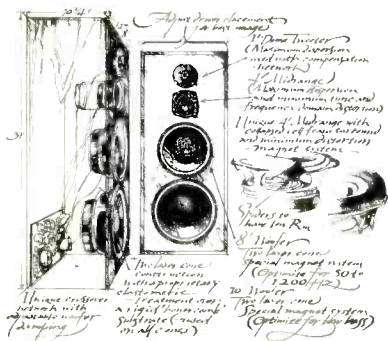 Adjust driver placement
for best image
1" Dome Tweeter
(Maximum dispersion
used with compensation
network)
4" Midrange
(Maximum dispersion
and minimum time and
frequency domain distortion)
Unique 4" Midrange with
and minimum distortion
magnet system
Spiders to
have low Rm
8" Woofer
Two layer cone
Special magnet system
(Optimize for 50 to
1200 Hz)
10" Woofer
Two layer cone
Special magnet system
(Optimize for low bass)
Two layer cone
construction
with a proprietary
elastomeric
treatment over
a rigid honeycomb
substrate (used
on all cones)
Unique crossover
network with
woofer
damping